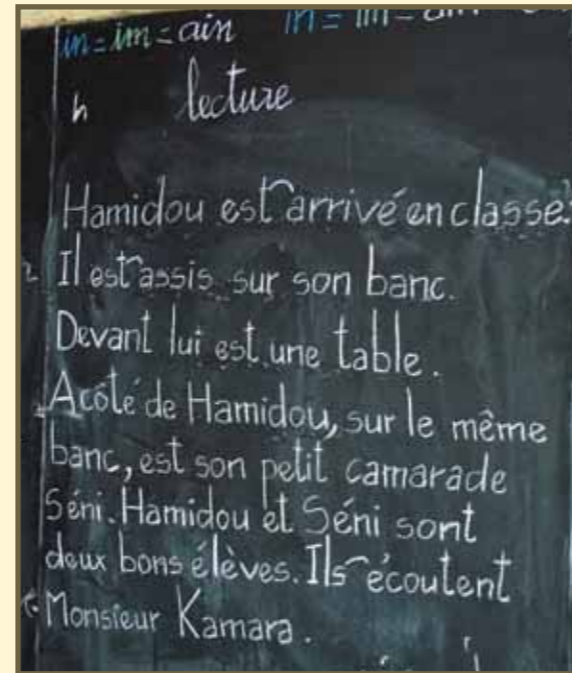 in = im = ain in = im = ain
h lecture
Hamidou est arrivé en classe.
Il est assis sur son banc.
Devant lui est une table.
A côté de Hamidou, sur le même
banc, est son petit camarade
Séni. Hamidou et Séni sont
deux bons élèves. Ils écoutent
Monsieur Kamara.